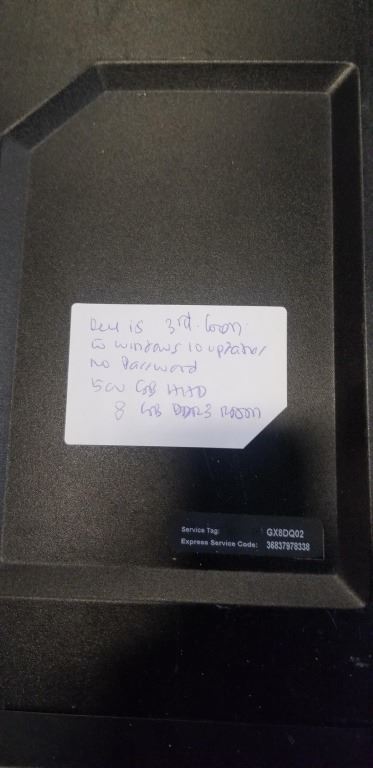 Dell is 3rd. Gen
Windows 10 updated
No Password
500 GB HDD
8 GB DDR3 RAM
Service Tag: GX8DQ02
Express Service Code: 36837978338